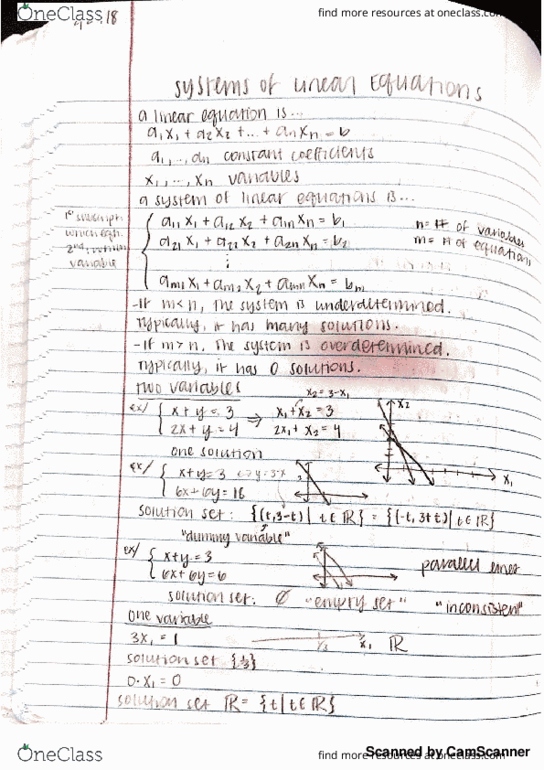 OneClass
find more resources at oneclass.com
18
Systems of Linear Equations
a linear equation is...
a₁x₁ + a₂x₂ + ... + aₙxₙ = b
a₁, ..., aₙ constant coefficients
x₁, ..., xₙ variables
a system of linear equations is...
1st subscript:
which eqn.
2nd: which
variable
a₁₁x₁ + a₁₂x₂ + a₁ₙxₙ = b₁
a₂₁x₁ + a₂₂x₂ + a₂ₙxₙ = b₂
⋮
aₘ₁x₁ + aₘ₂x₂ + aₘₙxₙ = bₘ
n = # of variables
m = # of equations
- If m < n, the system is underdetermined.
Typically, it has many solutions.
- If m > n, the system is overdetermined.
Typically, it has 0 solutions.
Two variables
x₂ = 3-x₁
ex/ { x + y = 3 ⇒ x₁ + x₂ = 3
2x + y = 4 2x₁ + x₂ = 4
x₂
x₁
one solution
ex/ { x + y = 3 ↔ y = 3-x
6x + 6y = 18
solution set: {(t, 3-t) | t ∈ ℝ} = {(-t, 3+t) | t ∈ ℝ}
"dummy variable"
ex/ { x + y = 3
6x + 6y = 6
parallel lines
solution set: ∅ "empty set" "inconsistent"
one variable
3x₁ = 1
1/3 x₁ ℝ
solution set {1/3}
0·x₁ = 0
solution set ℝ = {t | t ∈ ℝ}
OneClass
find more resources at oneclass.com
Scanned by CamScanner